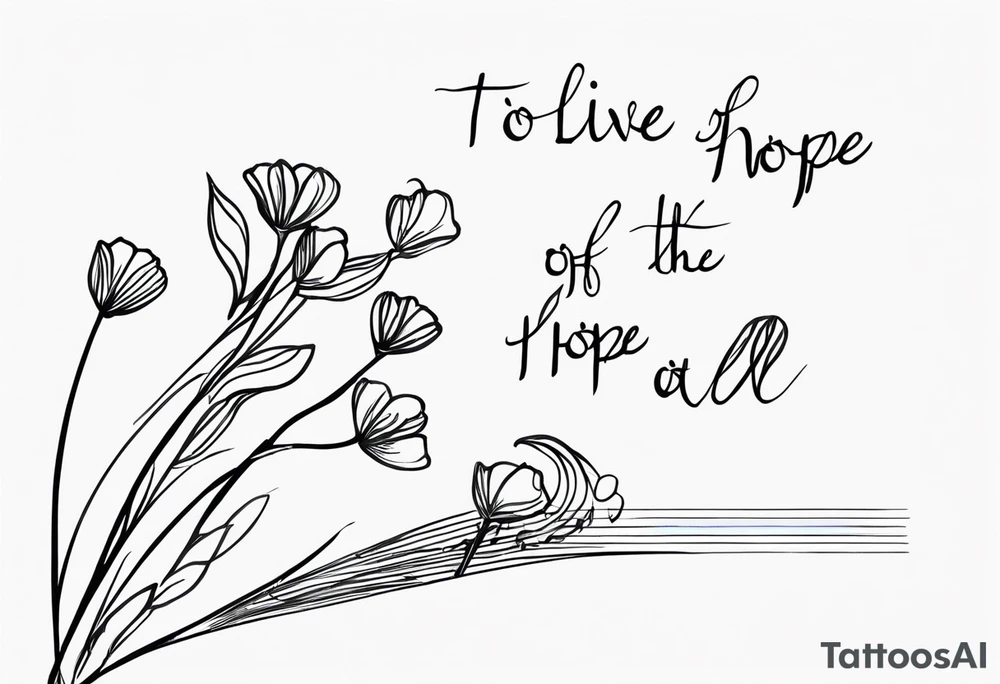 To live hope
of the
hope all
TattoosAI